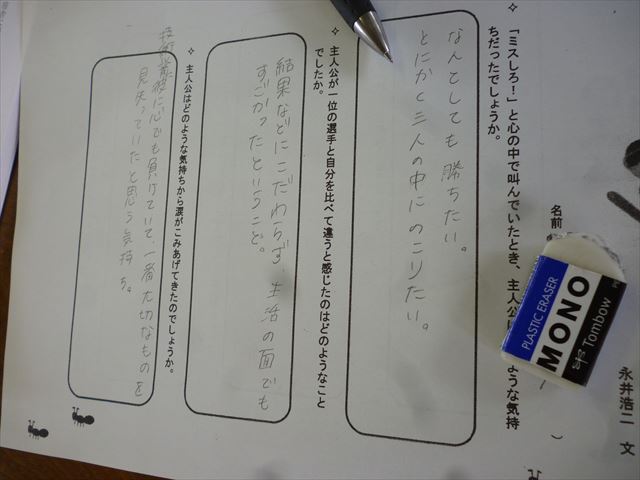 永井浩二 文
名前
)
✧ 「ミスしろ!」と心の中で叫んでいたとき、主人公は
ような気持
ちだったでしょうか。
なんとしても勝ちたい。
とにかく三人の中にのこりたい。
✧ 主人公が一位の選手と自分を比べて違うと感じたのはどのようなこと
でしたか。
結果などにこだわらず、生活の面でも
すごかったということ。
✧ 主人公はどのような気持ちから涙がこみあげてきたのでしょうか。
技術
に心でも負けていて、一番大切なものを
見失っていたと思う気持ち。
PLASTIC ERASER
MONO
Tombow